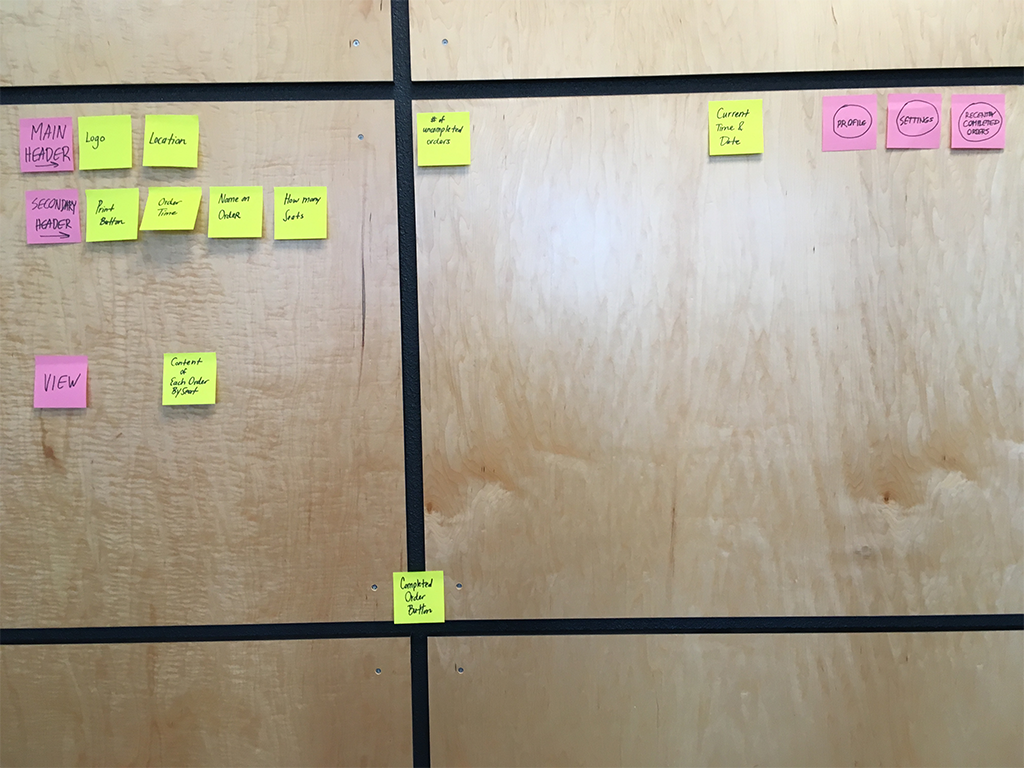 MAIN
HEADER
Logo
Location
# of
uncompleted
orders
Current
Time &
Date
PROFILE
SETTINGS
RECENTLY
COMPLETED
ORDERS
SECONDARY
HEADER
Print
Button
Order
Time
Name on
Order
How many
Seats
VIEW
Content
of
Each Order
By Seat
Completed
Order
Button